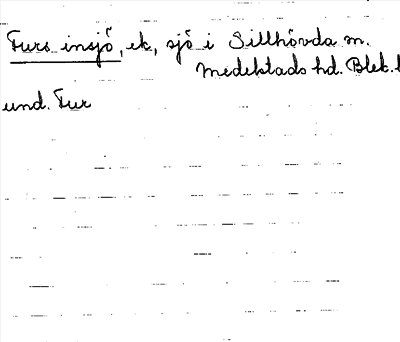 Furs insjö, ek, sjö i Sillhövda m.
Medelstads hd. Blek. l
und. Fur